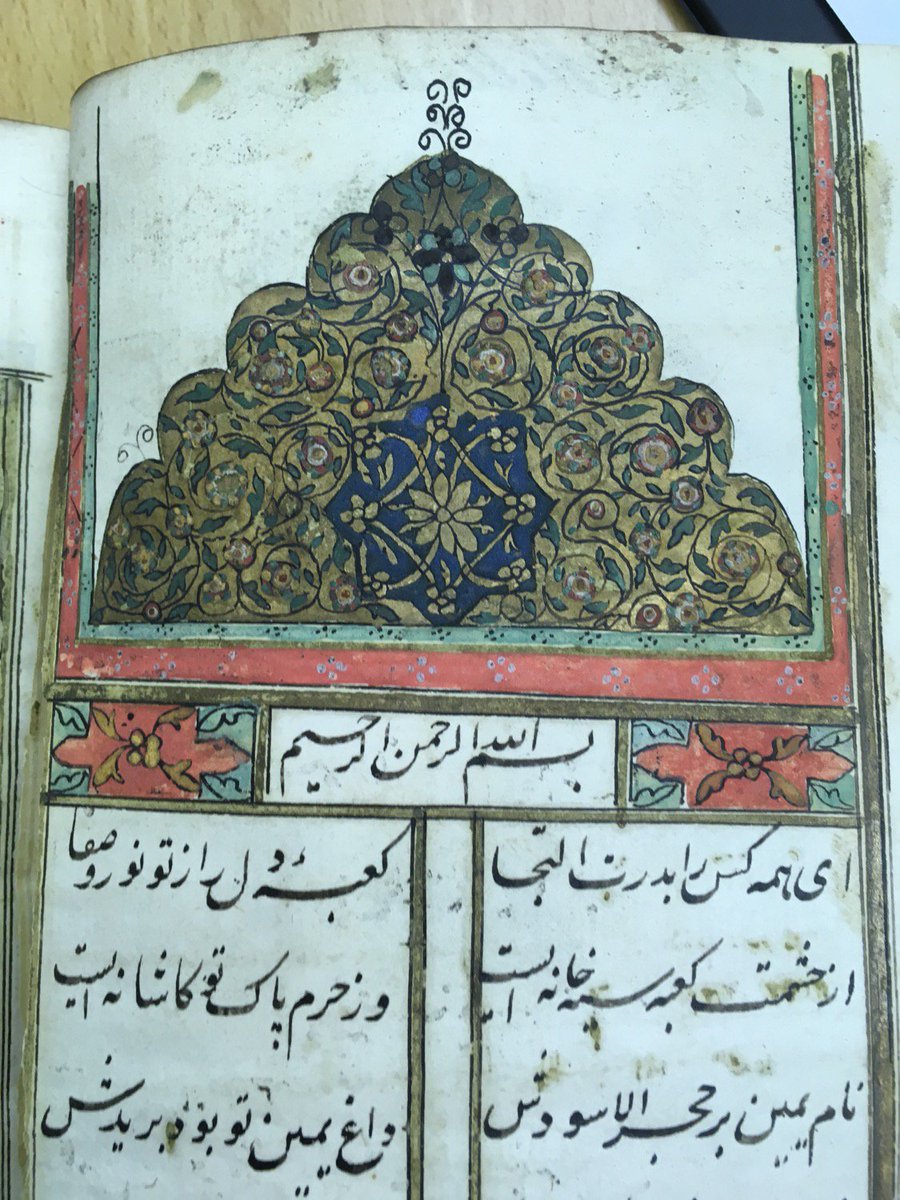 بسم الله الرحمن الرحیم
ای همه کس را بدرت التجا کعبهٔ دل را ز تو نور و صفا
از حشمت کعبه سیه خانه ایست وز حرم پاک تو کاشانه ایست
نام یمین بر حجر الاسودش داغ یمین تو بود بر یدش